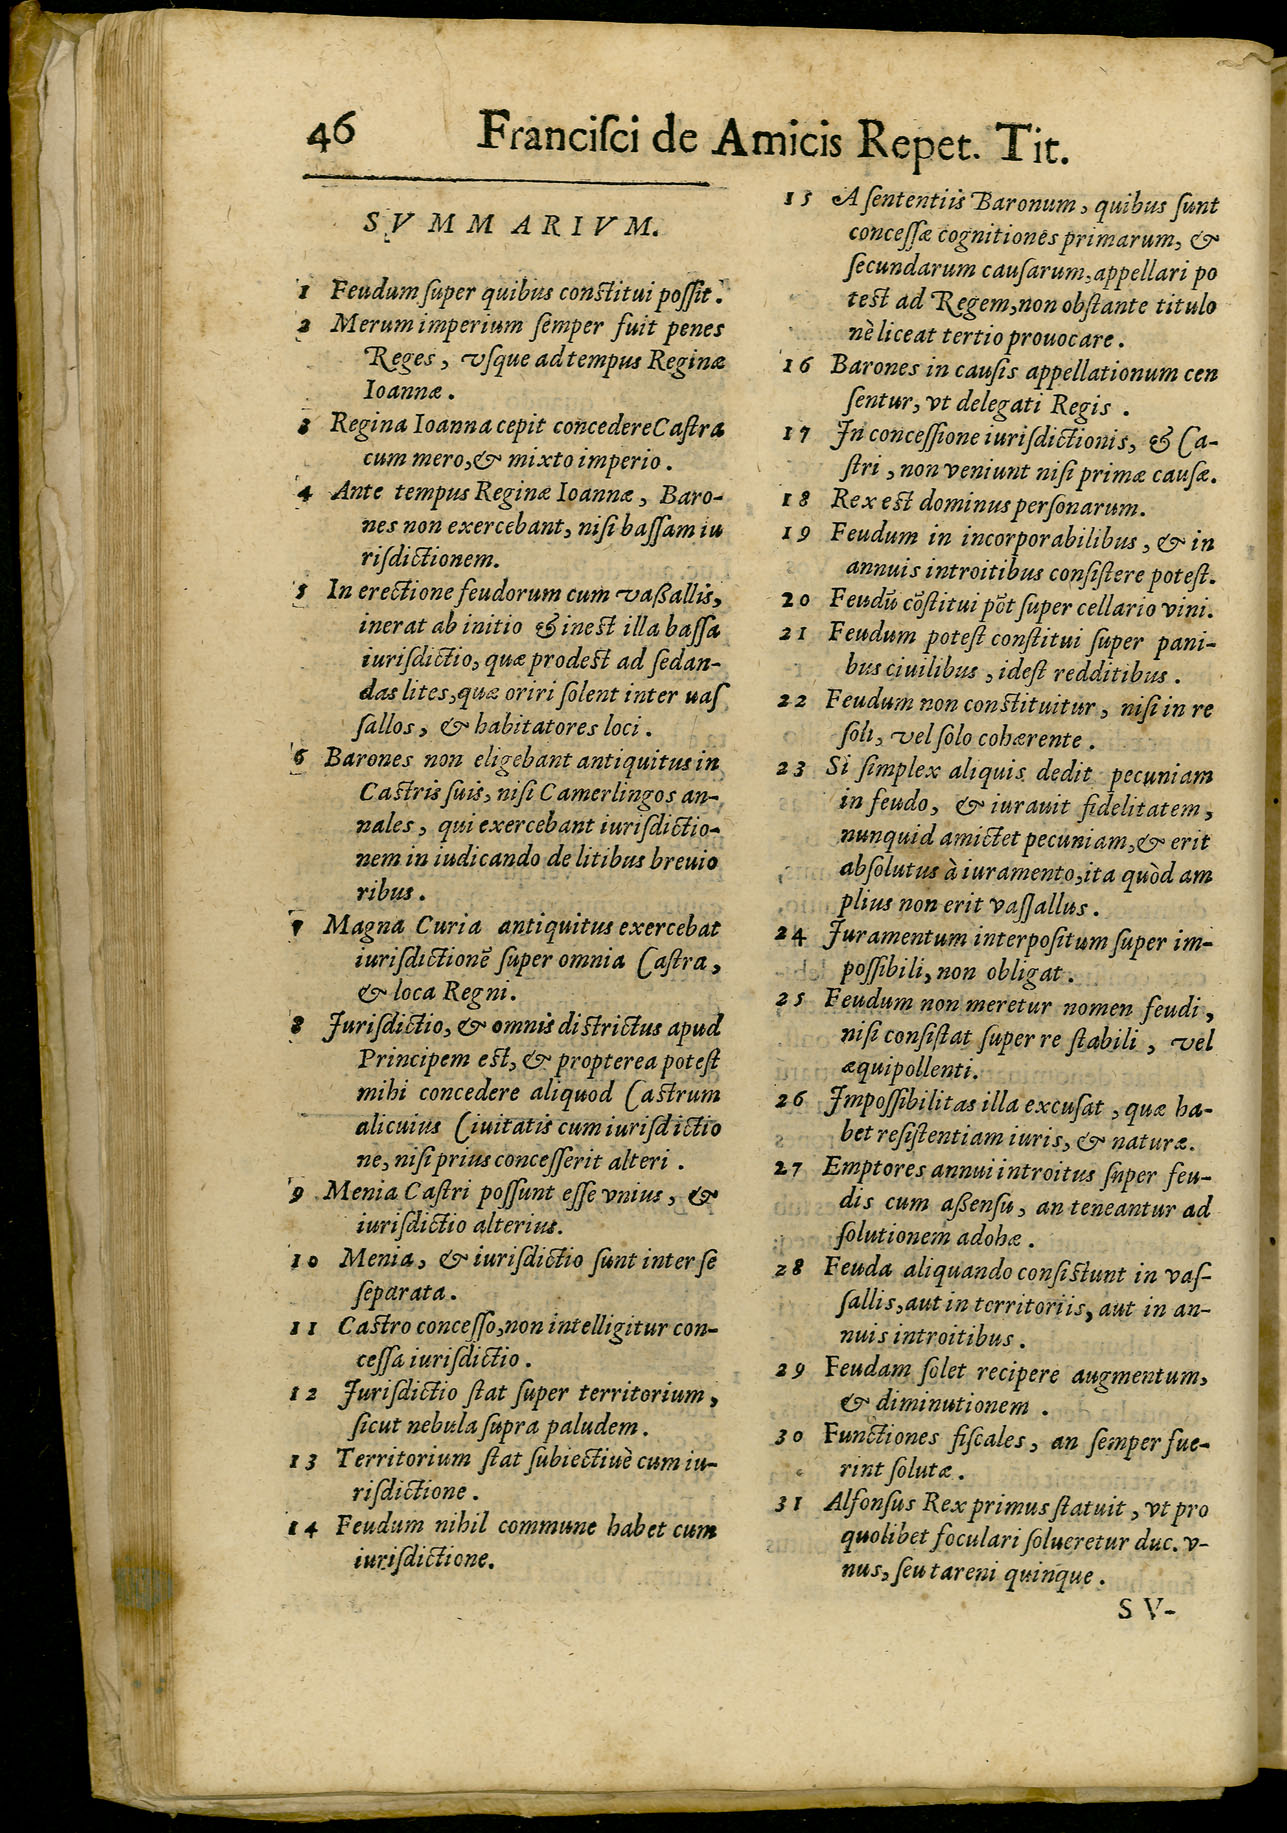 46 Franciſci de Amicis Repet. Tit.
SVMMARIVM.
1 Feudum ſuper quibus conſtitui poſſit.
2 Merum imperium ſemper fuit penes
Reges, vſque ad tempus Reginæ
Ioannæ.
3 Regina Ioanna cepit concedere Caſtra
cum mero, & mixto imperio.
4 Ante tempus Reginæ Ioannæ, Baro-
nes non exercebant, niſi baſſam iu
riſdictionem.
5 In erectione feudorum cum vaßallis,
inerat ab initio & ineſt illa baſſa
iuriſdictio, quæ prodeſt ad ſedan-
das lites, quæ oriri ſolent inter uaſ
ſallos, & habitatores loci.
6 Barones non eligebant antiquitus in
Caſtris ſuis, niſi Camerlingos an-
nales, qui exercebant iuriſdictio-
nem in iudicando de litibus breuio
ribus.
7 Magna Curia antiquitus exercebat
iuriſdictionē ſuper omnia Caſtra,
& loca Regni.
8 Juriſdictio, & omnis diſtrictus apud
Principem eſt, & propterea poteſt
mihi concedere aliquod Caſtrum
alicuius Ciuitatis cum iuriſdictio
ne, niſi prius conceſſerit alteri.
9 Menia Caſtri poſſunt eſſe vnius, &
iuriſdictio alterius.
10 Menia, & iuriſdictio ſunt inter ſe
ſeparata.
11 Caſtro conceſſo, non intelligitur con-
ceſſa iuriſdictio.
12 Juriſdictio ſtat ſuper territorium,
ſicut nebula ſupra paludem.
13 Territorium ſtat ſubiectiuè cum iu-
riſdictione.
14 Feudum nihil commune habet cum
iuriſdictione.
15 A ſententiis Baronum, quibus ſunt
conceſſæ cognitiones primarum, &
ſecundarum cauſarum, appellari po
teſt ad Regem, non obſtante titulo
nè liceat tertio prouocare.
16 Barones in cauſis appellationum cen
ſentur, vt delegati Regis.
17 In conceſſione iuriſdictionis, & Ca-
ſtri, non veniunt niſi primæ cauſæ.
18 Rex eſt dominus perſonarum.
19 Feudum in incorporabilibus, & in
annuis introitibus conſiſtere poteſt.
20 Feudū cōſtitui pōt ſuper cellario vini.
21 Feudum poteſt conſtitui ſuper pani-
bus ciuilibus, ideſt redditibus.
22 Feudum non conſtituitur, niſi in re
ſoli, vel ſolo cohærente.
23 Si ſimplex aliquis dedit pecuniam
in feudo, & iurauit fidelitatem,
nunquid amictet pecuniam, & erit
abſolutus à iuramento, ita quòd am
plius non erit vaſſallus.
24 Juramentum interpoſitum ſuper im-
poſſibili, non obligat.
25 Feudum non meretur nomen feudi,
niſi conſiſtat ſuper re ſtabili, vel
æquipollenti.
26 Impoſſibilitas illa excuſat, quæ ha-
bet reſiſtentiam iuris, & naturæ.
27 Emptores annui introitus ſuper feu-
dis cum aßenſu, an teneantur ad
ſolutionem adohæ.
28 Feuda aliquando conſiſtunt in vaſ-
ſallis, aut in territoriis, aut in an-
nuis introitibus.
29 Feudam ſolet recipere augmentum,
& diminutionem.
30 Functiones fiſcales, an ſemper fue-
rint ſolutæ.
31 Alfonſus Rex primus ſtatuit, vt pro
quolibet foculari ſolueretur duc. v-
nus, ſeu tareni quinque.
SV-